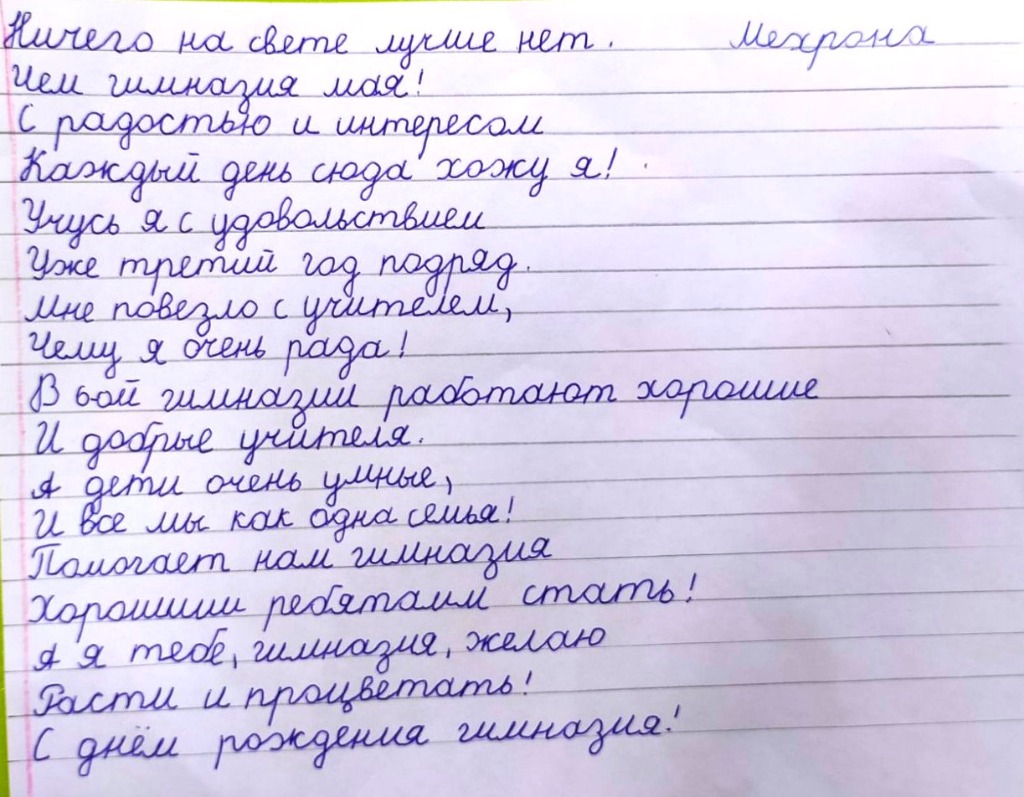 Ничего на свете лучше нет. Мехрона
Чем гимназия мая!
С радостью и интересом
Каждый день сюда хожу я!
Учусь я с удовольствием
Уже третий год подряд.
Мне повезло с учителем,
Чему я очень рада!
В 6ой гимназии работают хорошие
И добрые учителя.
А дети очень умные,
И все мы как одна семья!
Помогает нам гимназия
Хорошими ребятами стать!
А я тебе, гимназия, желаю
Расти и процветать!
С днём рождения гимназия!